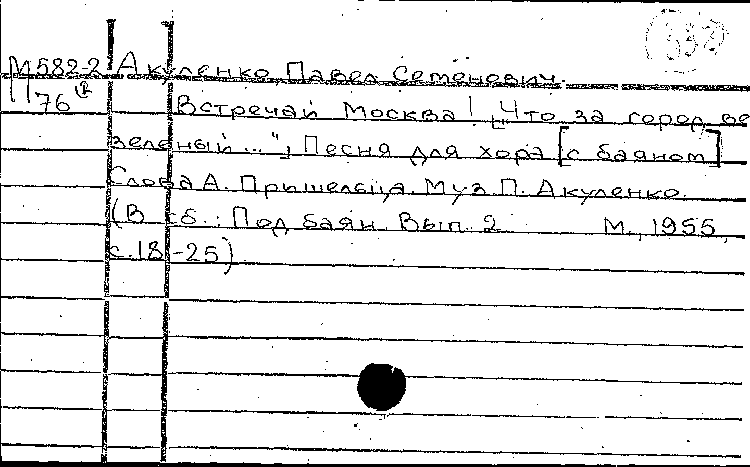 332
М582-2 Акуленко, Павел Семенович.
11
76 Встречай Москва! "Что за город ве
зеленый...", Песня для хора [с баяном]
Слова А. Пришельца. Муз. П. Акуленко.
(В сб.: Под баян. Вып. 2 М., 1955,
с. 18-25)